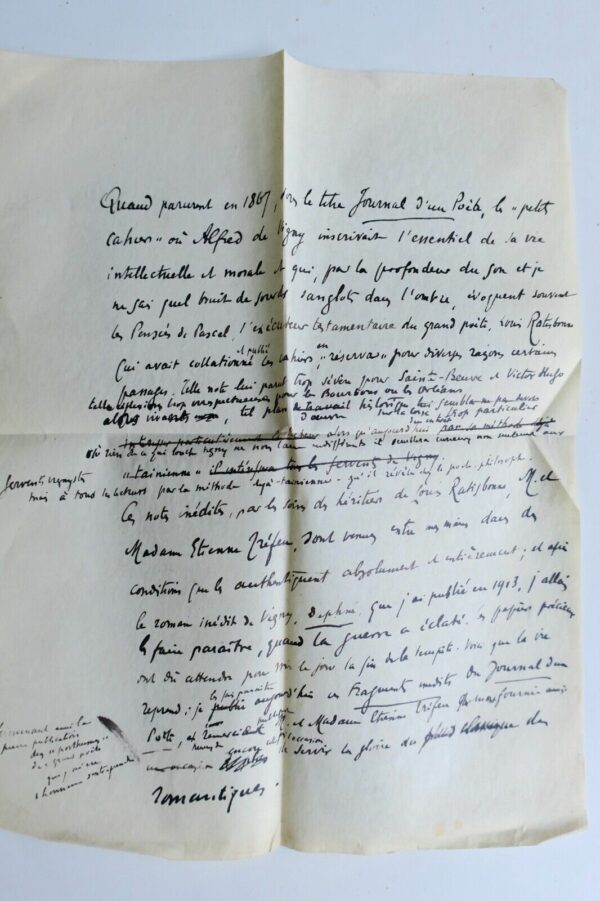 Quand parurent en 1867, sous le titre Journal d'un Poète, les "petits
cahiers" où Alfred de Vigny inscrivait l'essentiel de sa vie
intellectuelle et morale et qui, par la profondeur du son et je
ne sais quel bruit de sourds sanglots dans l'ombre, évoquent souvent
les Pensées de Pascel, l'exécuteur testamentaire du grand poète, Louis Ratisbonne
qui avait collationné et publié les cahiers, en "réserva" pour diverses raisons certains
passages. Telle note lui parut trop sévère pour Sainte-Beuve et Victor Hugo
alors vivants, telle réflexion trop irrespectueuse pour les Bourbons ou les Orléans
tel plan d'œuvre historique lui sembla
trop particulier
alors qu'aujourd'hui
où rien de ce qui touche Vigny ne nous laisse indifférents il semblera curieux non seulement aux
servents vignystes
mais à tous les lecteurs par la méthode déjà "tainienne" qu'il révèle chez le poète-philosophe.
Ces notes inédites, par les soins des héritiers de Louis Ratisbonne, M. et
Madame Etienne Tréfeu, sont venues entre mes mains dans des
conditions qui les authentiquent absolument et entièrement ; et après
le roman inédit de Vigny, Daphné, que j'ai publié en 1913, j'allais
les faire paraître, quand la guerre a éclaté. Ces papiers précieux
ont dû attendre pour voir le jour la fin de la tempête. Voici que la vie
reprend : je fais paraître aujourd'hui ces Fragments inédits du Journal d'un
Poète, et remercie M. et Madame Etienne Tréfeu de me fournir ainsi
encore cette occasion de servir la gloire du
des
romantiques.
première publication
des "posthumes"
du grand poète
que j'ai eu
l'honneur